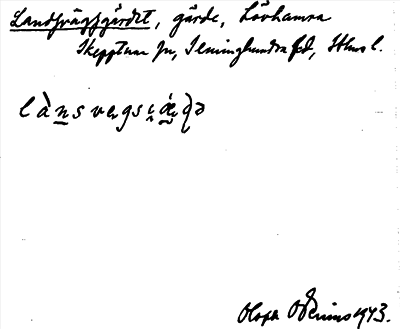 Landsvägsgärdet, gärde, Lövhamra
Skepptuna sn, Seminghundra hd, Sthms l.
lànsvegsjæḍə
1943.